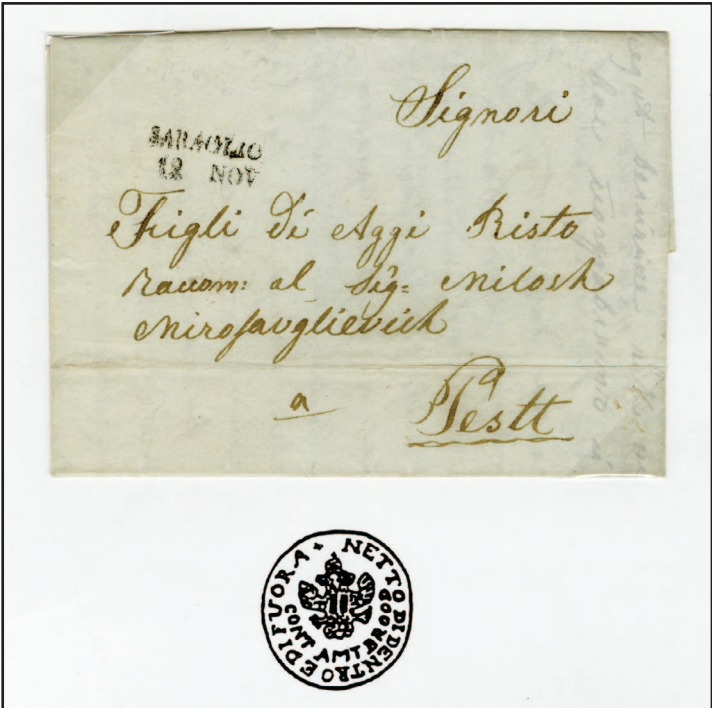 SARAOLIO
12 NOV
Signori
Figli di Aggi Risto
Raccom: al Sig= Milosh
Miroſavglievich
a Pestt
NETTO DI DENTRO E DI FUORA +
CONT AMT BROOD